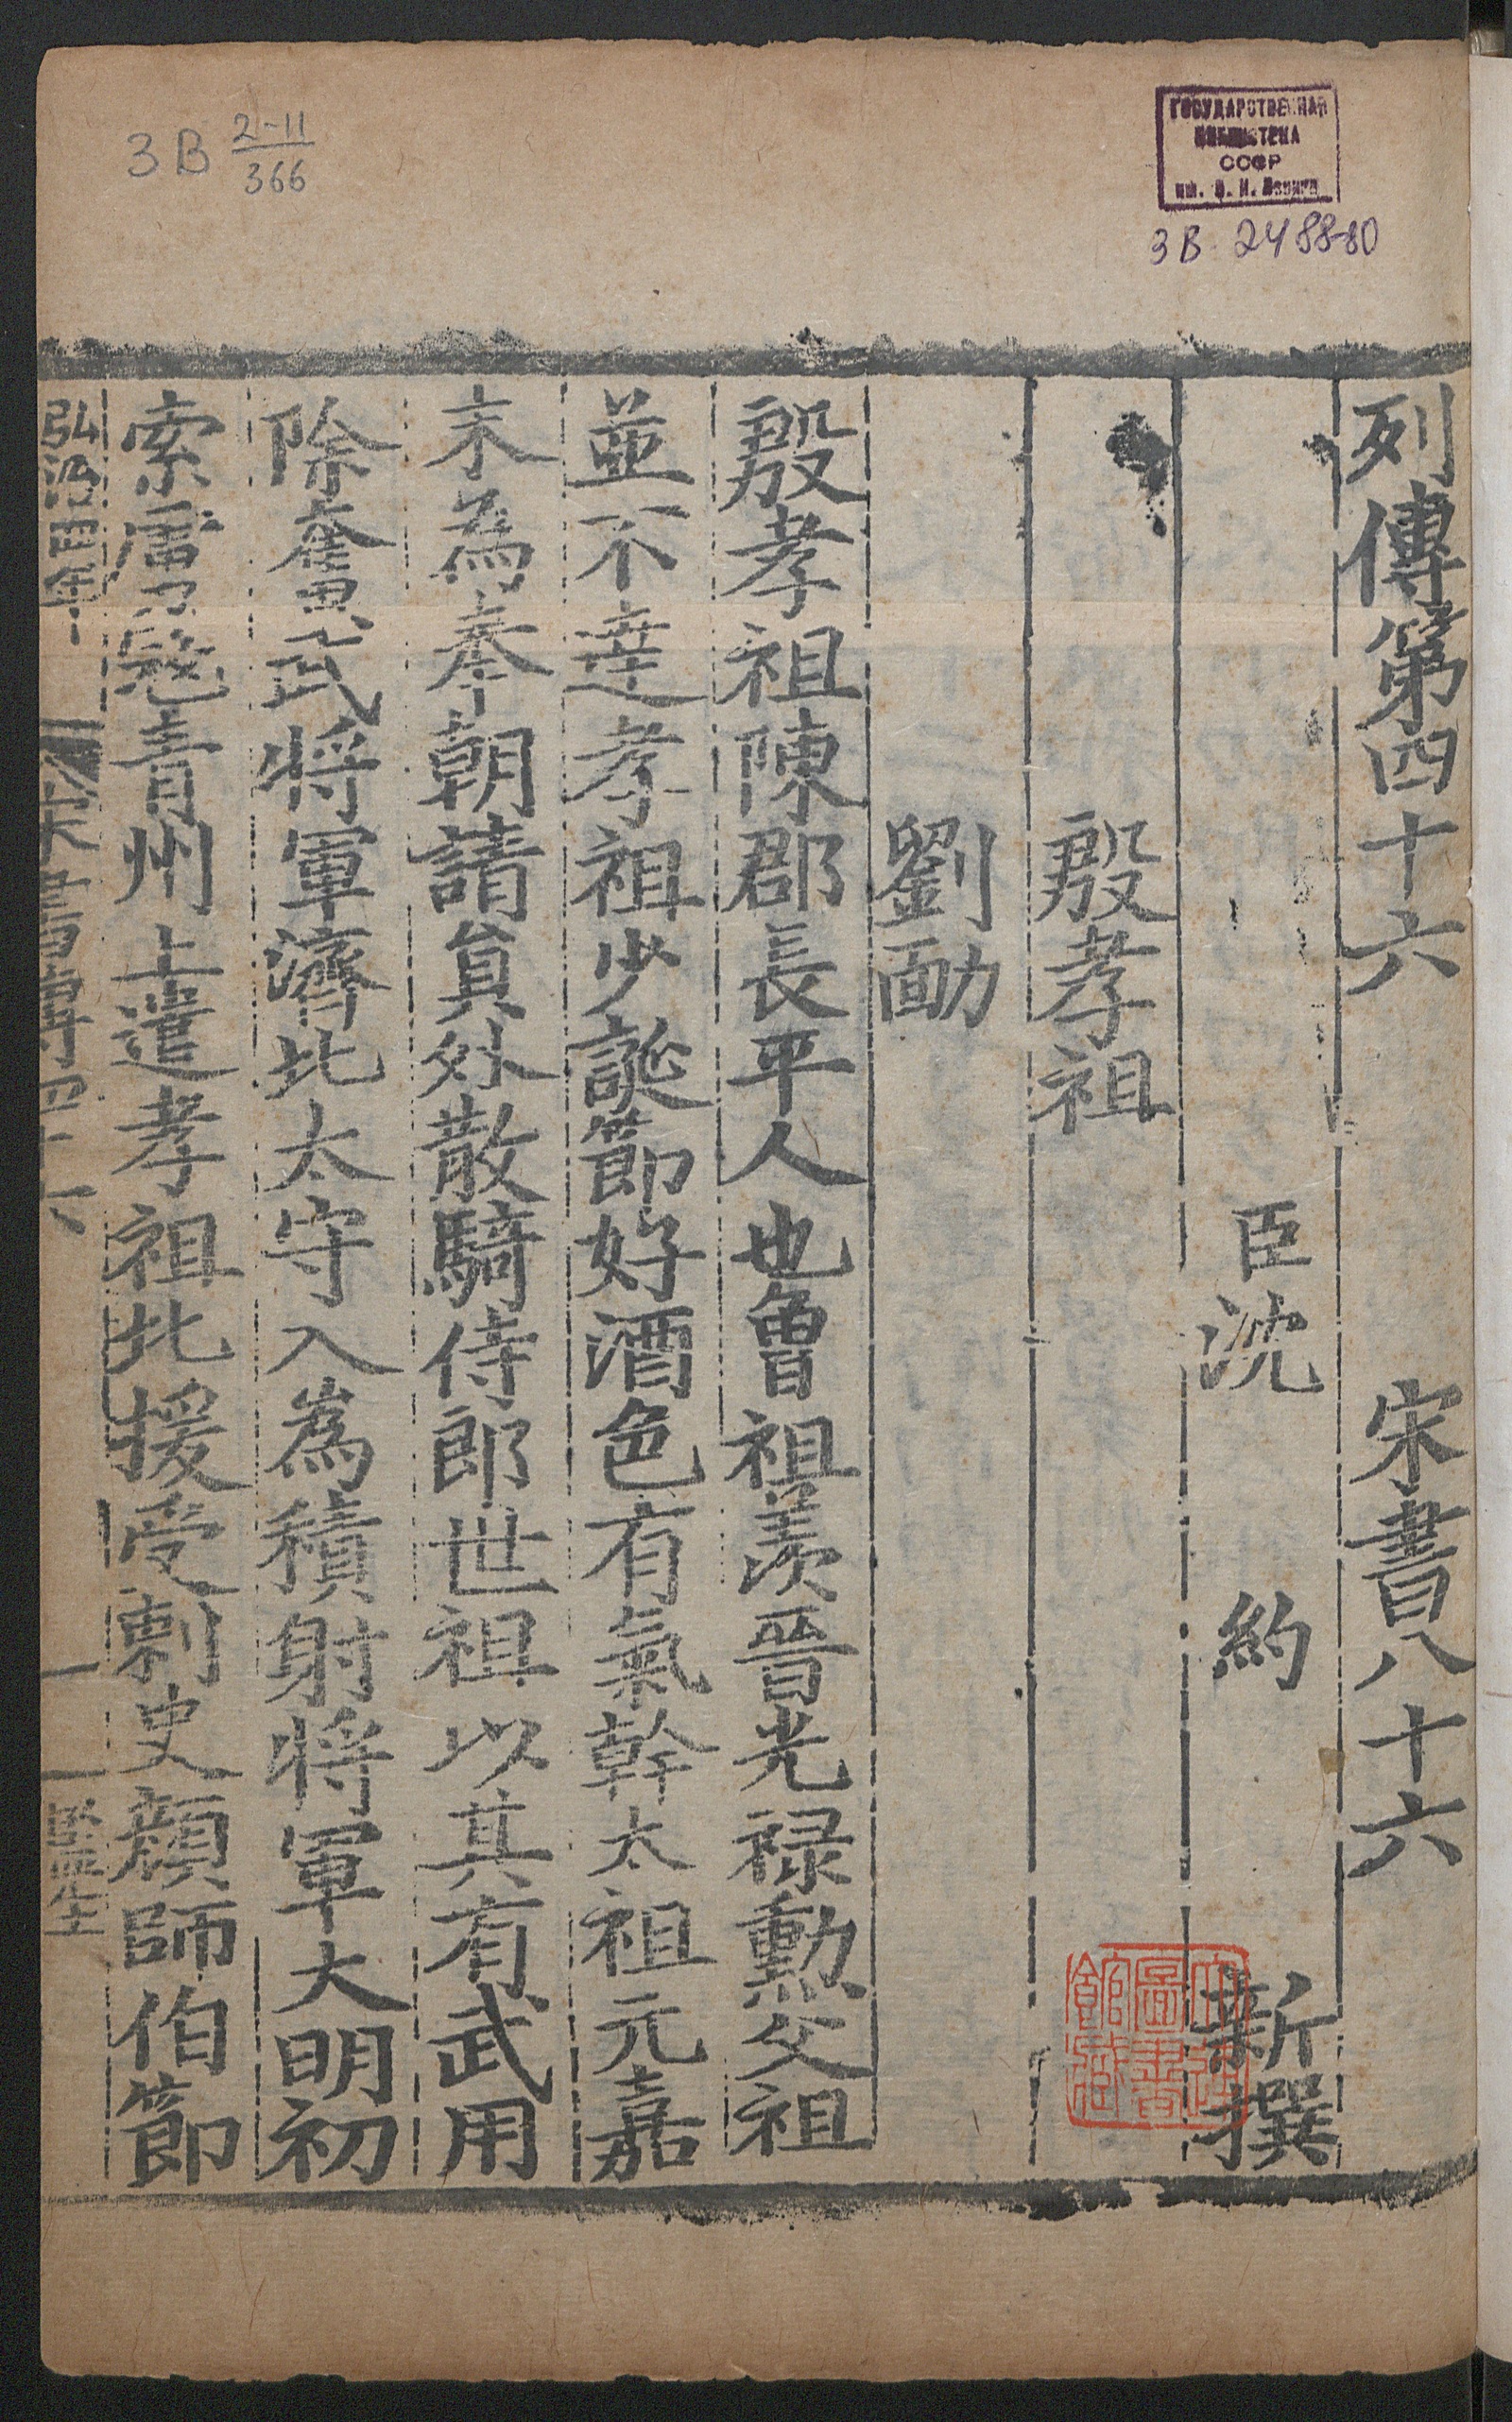 3B 2-11/366
ГОСУДАРСТВЕННАЯ
БИБЛИОТЕКА
СССР
им. В. И. Ленина
3В 2488-80
列傳第四十六 宋書八十六
臣沈 約 新撰
殷孝祖
劉勔
殷孝祖陳郡長平人也曾祖羨晉光祿勳父祖
並不達孝祖少誕節好酒色有氣幹太祖元嘉
末為奉朝請負外散騎侍郎世祖以其有武用
除奮武將軍濟北太守入為積射將軍大明初
索虜寇青州上遣孝祖北援受刺史顏師伯節
弘治四年
宋書傳四十六
一
監生
圖書
館藏